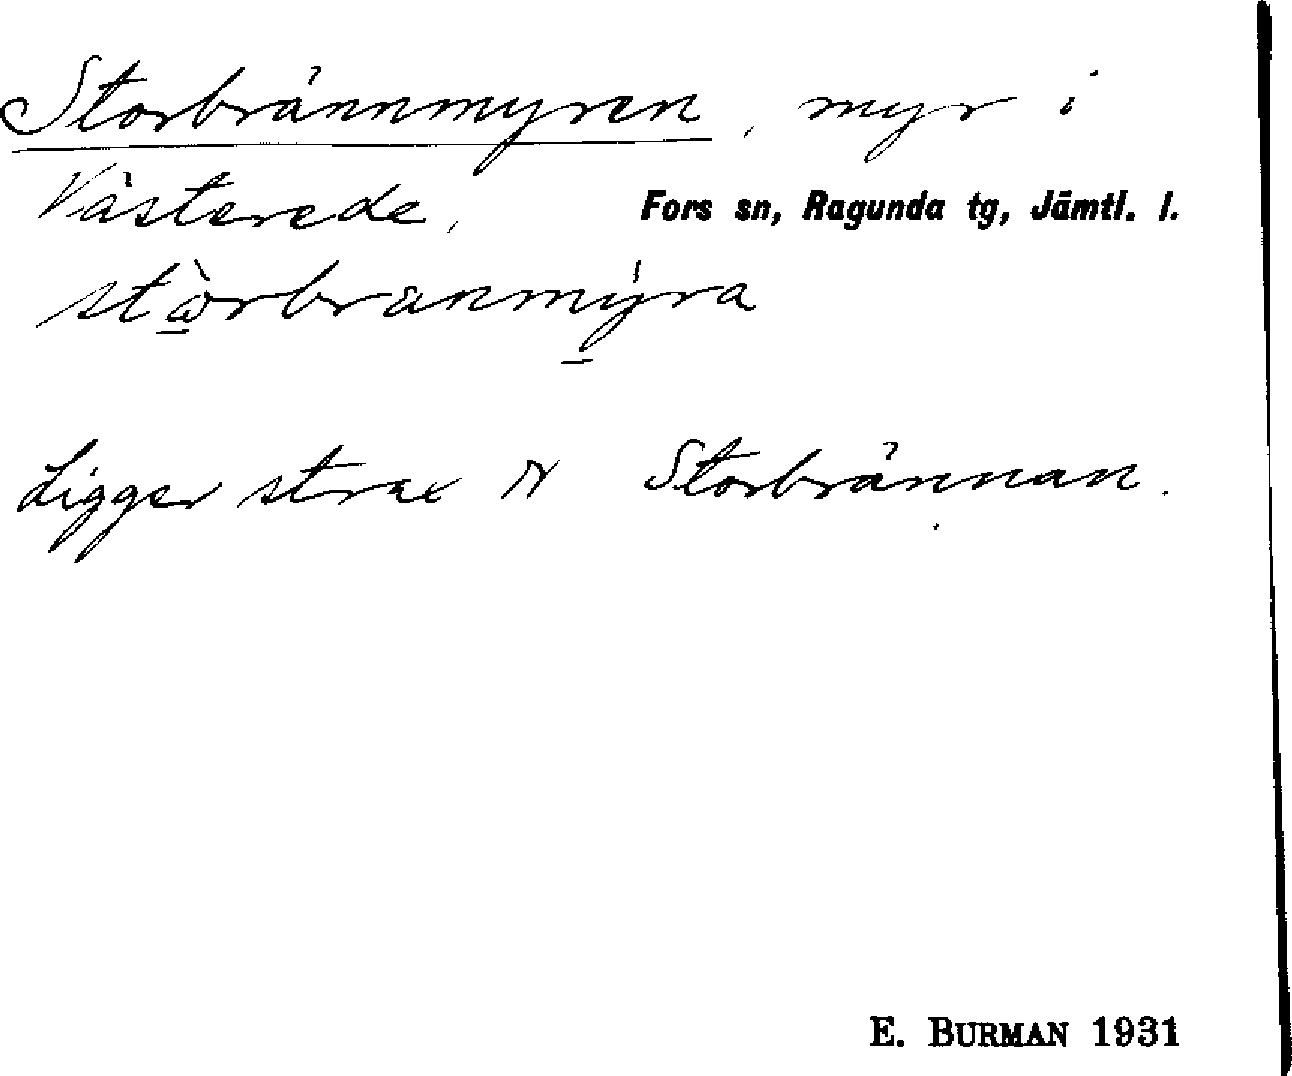 Storbrännmyren, myr i
Västerede, Fors sn, Ragunda tg, Jämtl. l.
stὼ̱rbranmý̱ra
Ligger strax N Storbrännan.
E. BURMAN 1931